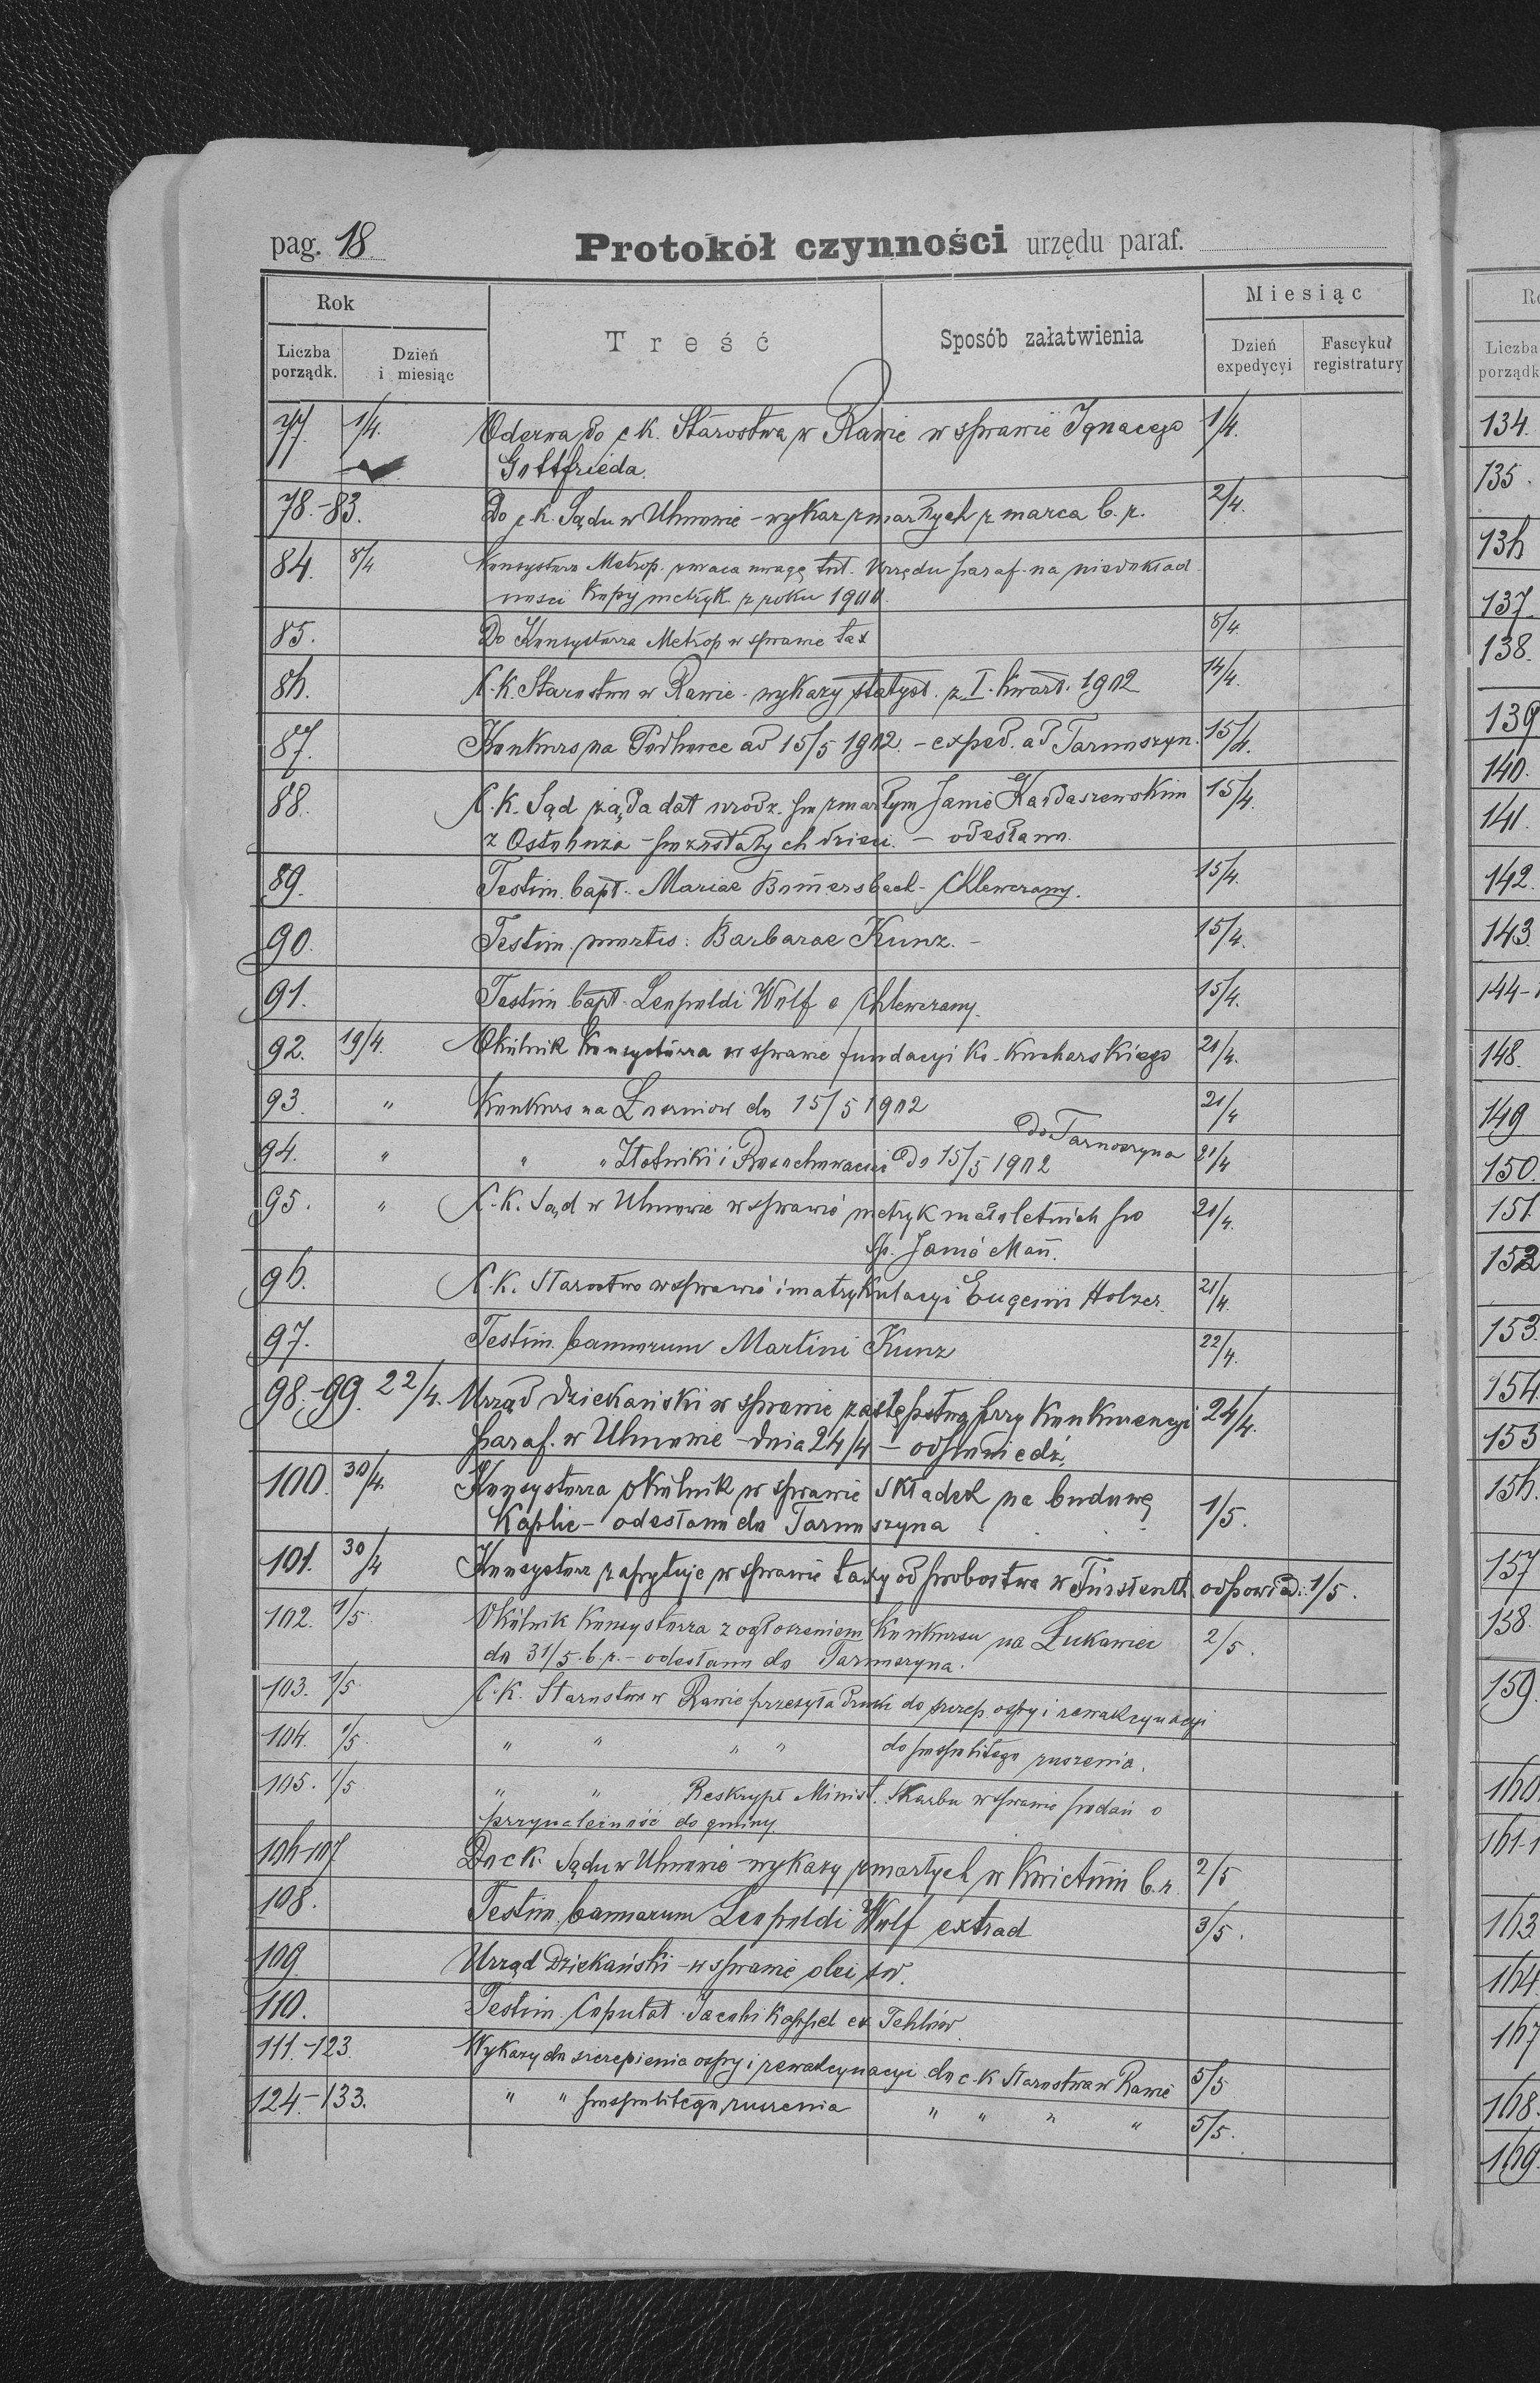 pag. 18.
Protokół czynności urzędu paraf.
Rok
Treść
Sposób załatwienia
Miesiąc
Liczba porządk.
Dzień i miesiąc
Dzień expedycyi
Fascykuł registratury
77. 1/4. Odezwa do c k. Starostwa w Rawie w sprawie Ignacego 1/4.
Gottfrieda.
78.-83. Do c.k. Sądu w Uhnowie - wykaz zmarłych z marca b. r. 2/4.
84. 8/4 Konsystorz Metrop. zwraca uwagę tut. Urzędu paraf. na niedokład
ności kopij metryk. z roku 1900.
85. Do Konsystorza Metrop w sprawie tax 8/4.
86. C.K. Starostwo w Rawie - wykazy statyst. z I. kwart. 1902 14/4.
87. Konkurs na Podhorce ad 15/5 1902. - exped. ad Tarnoszyn. 15/4.
88. C.K. Sąd żąda dat urodz. po zmarłym Janie Kardaszewskim 15/4.
z Ostobuża - pozostałych dzieci. - odesłano.
89. Testim. bapt. Mariae - Chlewczany. 15/4.
90. Testim. mortis: Barbarae Kunz. - 15/4.
91. Testim bapt. Leopoldi Wolf e Chlewczany. 15/4.
92. 19/4. Okólnik Konsystorza w sprawie fundacyi ks. Kucharskiego 21/4.
93. " Konkurs na Żurniow do 15/5 1902 21/4
94. " " " Złotniki i Rosochowaciec do 15/5 1902 do Tarnoszyna 21/4
95. " C.K. Sąd w Uhnowie w sprawie metryk małoletnich po 21/4.
śp. Janie Mań.
96. C.K. Starostwo w sprawie imatrykulacyi Eugenii Holzer. 21/4.
97. Testim. bannorum Martini Kunz 22/4.
98.-99. 22/4. Urząd dziekański w sprawie zastępstwa przy konkurencyi 24/4.
paraf. w Uhnowie - dnia 24/4 - odpowiedź.
100. 30/4. Konsystorza okólnik w sprawie składek na budowę 1/5.
kaplic - odesłano do Tarnoszyna
101. 30/4 Konsystorz zapytuje w sprawie taxy od probostwa w Fürstenth. odpowied: 1/5.
102. 1/5. Okólnik Konsystorza z ogłoszeniem konkursu na Łukawiec 2/5.
do 31/5. b. r. - odesłano do Tarnoszyna.
103. 1/5. C.K. Starostwo w Rawie przesyła druk do szczep. ospy i rewakcynacyi
104. 1/5. " " " " do pospolitego ruszenia.
105. 1/5 " " Reskrypt Minist. Skarbu w sprawie podań o
przynależność do gminy.
106-107 Do c k. Sądu w Uhnowie - wykazy zmarłych w kwietniu b. r. 2/5
108. Testim. bannorum Leopoldi Wolf extrad 3/5.
109 Urząd Dziekański - w sprawie olei św.
110. Testim. Copulat. Jacobi Koppel ex Tehlów.
111.-123. Wykazy do szczepienia ospy i rewakcynacyi do c.k Starostwa w Rawie 5/5
124.-133. " " pospolitego ruszenia " " " " 5/5.
Ro
Liczba
porządk
134.
135.
136
137
138.
139
140.
141.
142.
143.
144-1
148.
149
150.
151.
152
153.
154.
155
156.
157
158.
159.
160.
161-1
163
164.
167
168.
169.